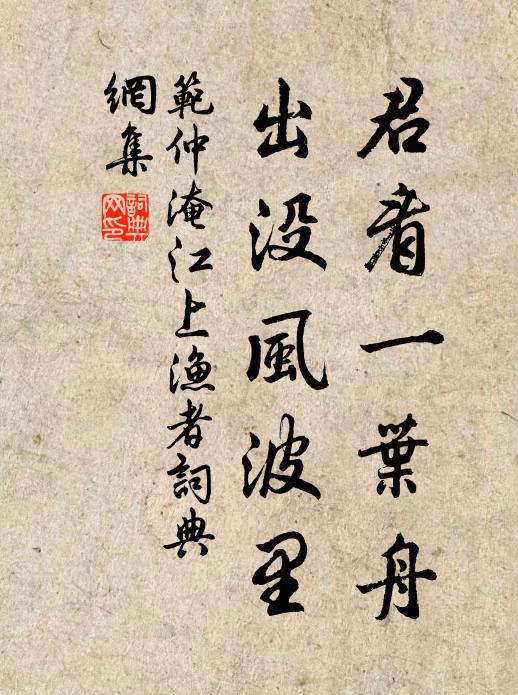 君看一葉舟
出没風波里
範仲淹江上漁者詞典
網集
詞典网印